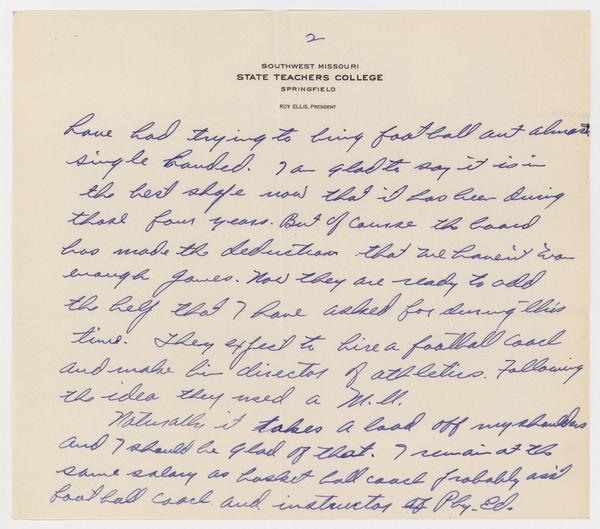 2
SOUTHWEST MISSOURI
STATE TEACHERS COLLEGE
SPRINGFIELD
ROY ELLIS, PRESIDENT
have had trying to bring football out almost
single handed. I am glad to say it is in
the best shape now that it has been during
those four years. But of course the board
has made the deduction that we haven't won
enough games. Now they are ready to add
the help that I have asked for during this
time. They expect to hire a football coach
and make him director of athletics. Following
the idea they need a M.U.
Naturally it takes a load off my shoulders
and I should be glad of that. I remain at the
same salary as basket ball coach probably ass't
football coach and instructor of Phy. Ed.